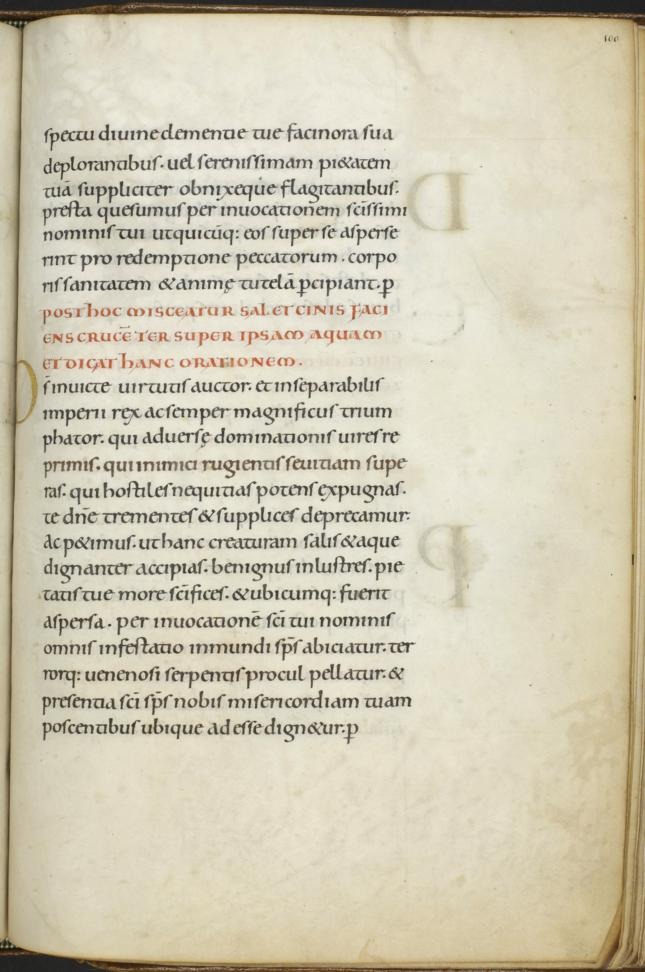 100
spectu diuine clementie tue facinora sua
deplorantibus. uel serenissimam pi&atem
tuā suppliciter obnixeque flagitantibus.
presta quesumus per inuocationem scīssimi
nominis tui ut quicūq: eos super se asperse
rint pro redemptione peccatorum. corpo
ris sanitatem & animę tutelā ꝑcipiant. ꝑ
POST hOC MISCEATUR SAL ET CINIS FACI
ENS CRUCĒ TER SUPER IPSAM AQUAM
ET DICAT hANC ORATIONEM.
D̄s inuicte uirtutis auctor. et inseparabilis
imperii rex ac semper magnificus trium
phator. qui aduersę dominationis uires re
primis. qui inimici rugientis seuitiam supe
ras. qui hostiles nequitias potens expugnas.
te dn̄e trementes & supplices deprecamur.
Ac p&imus. ut hanc creaturam salis & aque
dignanter accipias. benignus inlustres. pie
tatis tue more scīfices. & ubicumq: fuerit
aspersa. per inuocationē scī tui nominis
omnis infestatio inmundi sps̄ abiciatur. ter
rorq: uenenosi serpentis procul pellatur. &
presentia scī sps̄ nobis misericordiam tuam
poscentibus ubique adesse dign&ur. ꝑ